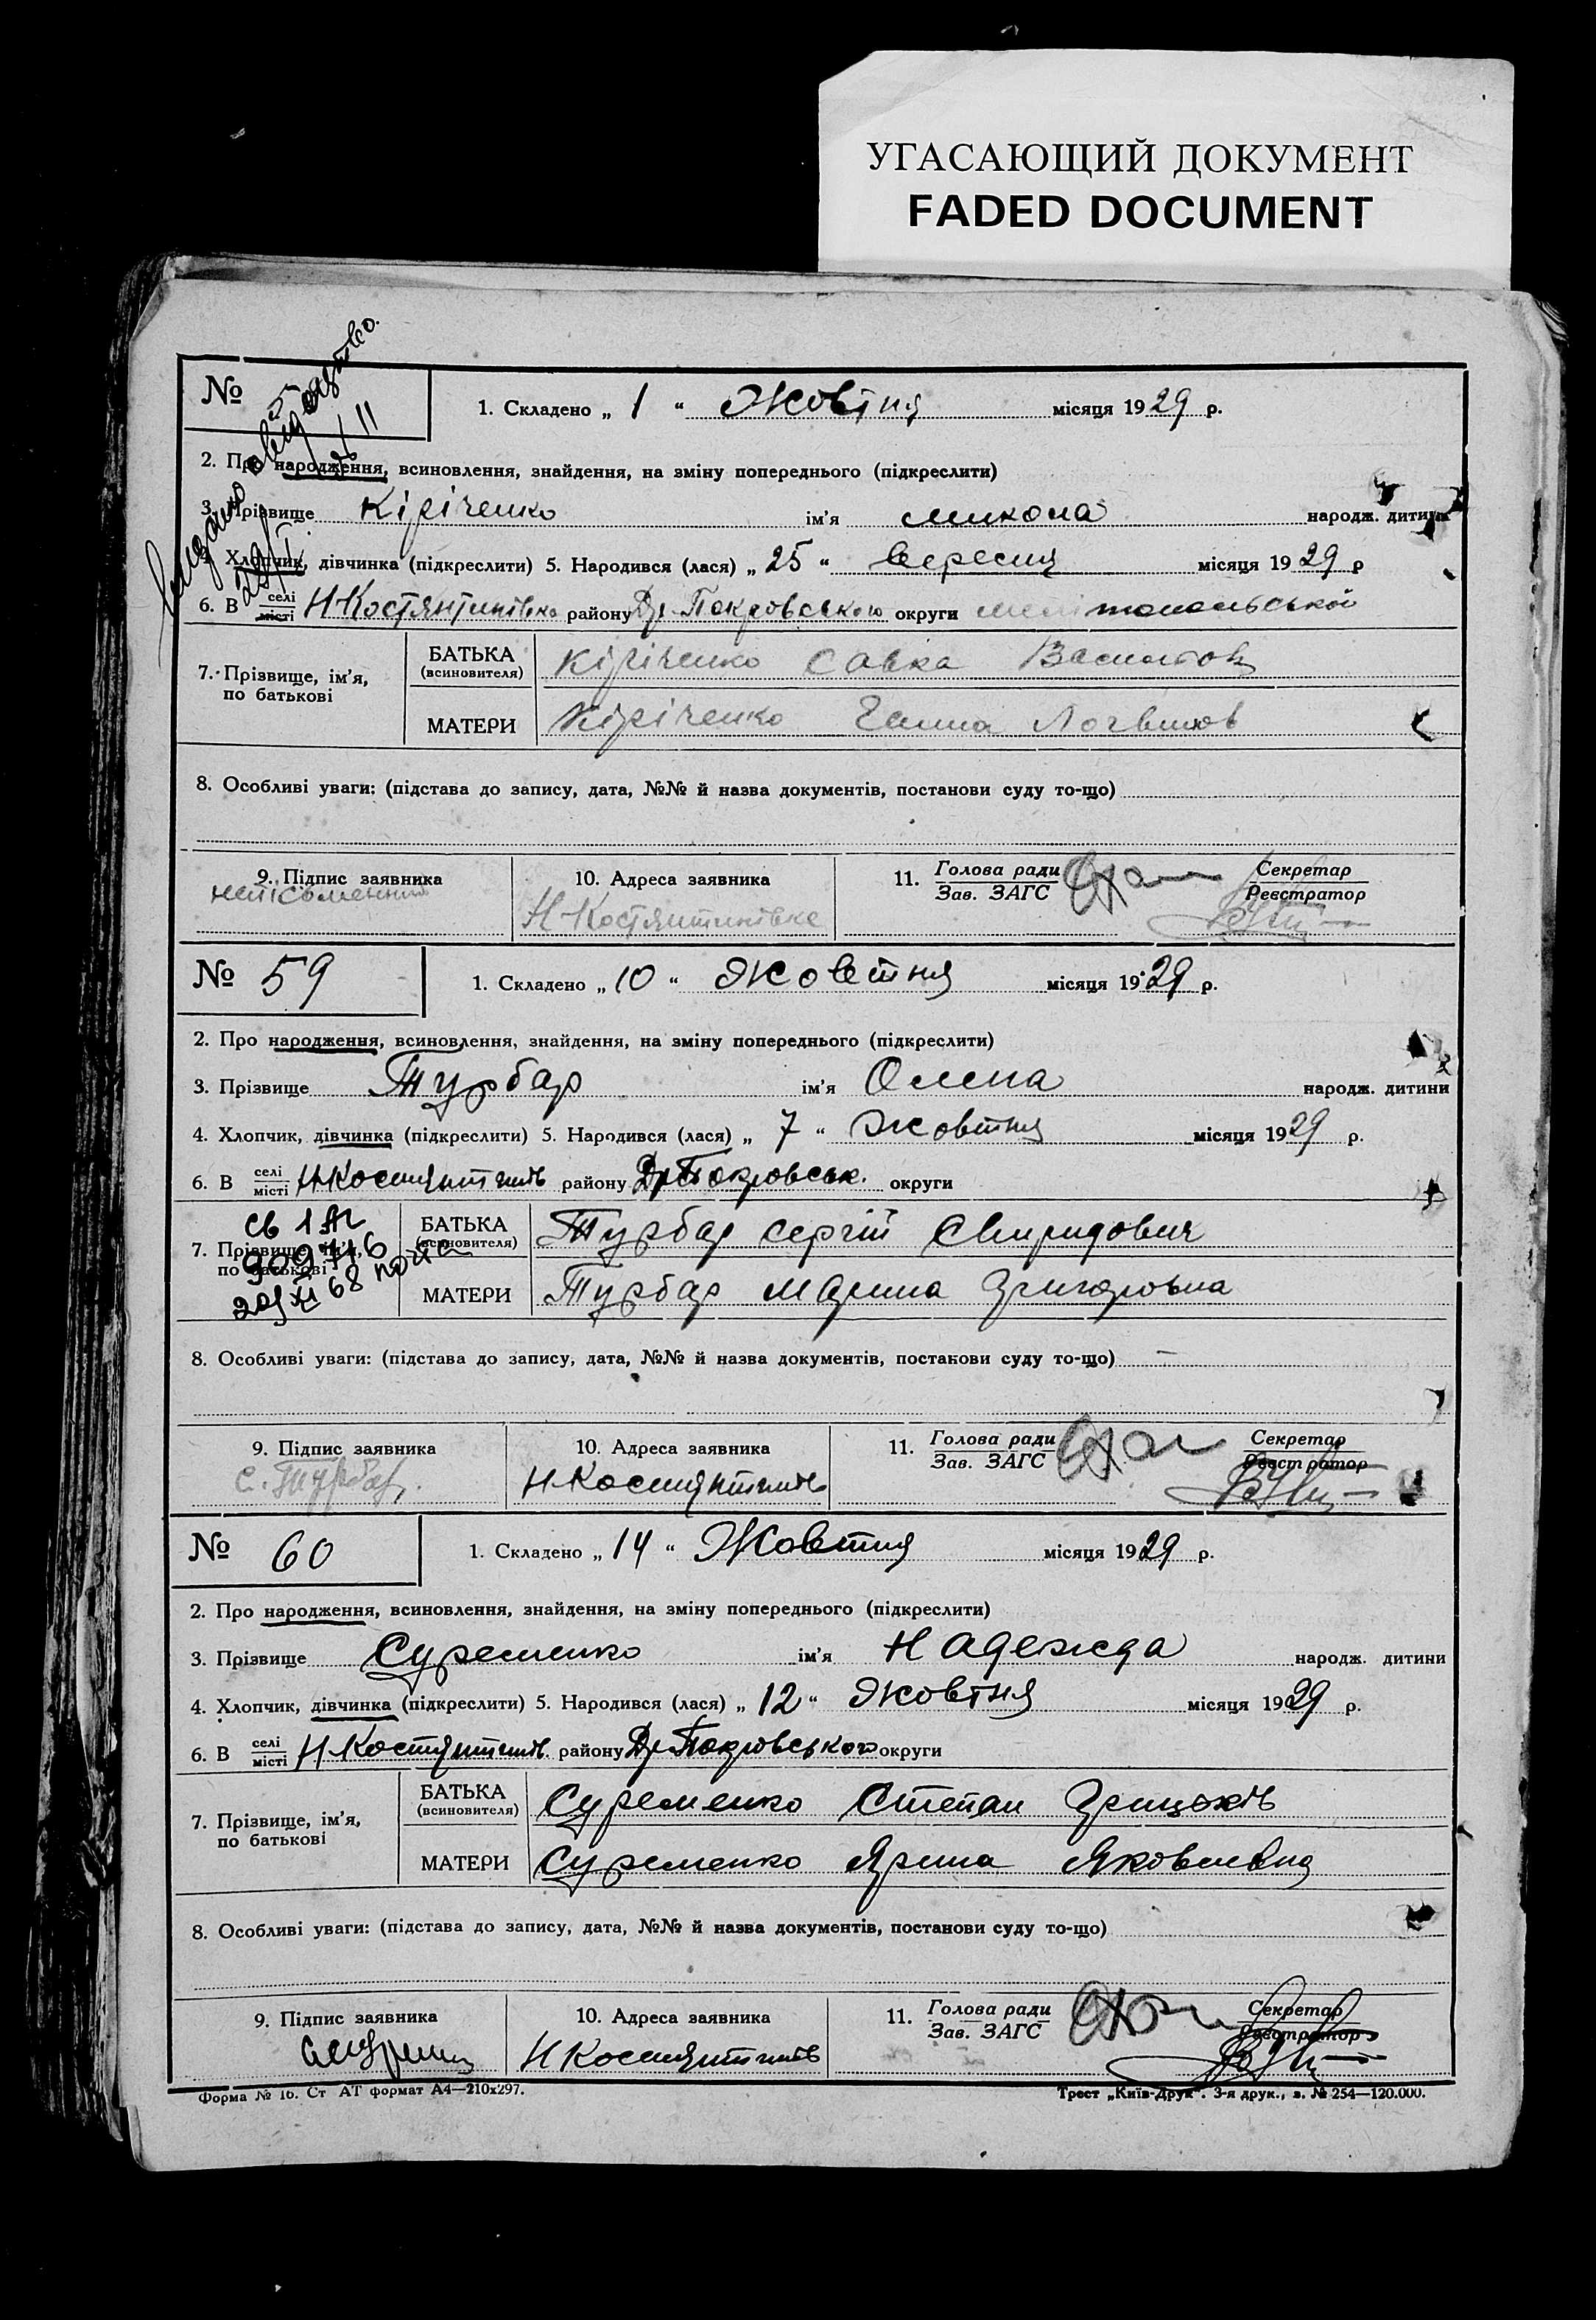 УГАСАЮЩИЙ ДОКУМЕНТ
FADED DOCUMENT
№
1. Складено „ 1 “ Жовтня місяця 1929 р.
2. Про народження, всиновлення, знайдення, на зміну попереднього (підкреслити)
3. Прізвище Кіріченко ім'я Микола народж. дитини
Хлопчик, дівчинка (підкреслити) 5. Народився (лася) „ 25 “ Вересня місяця 1929 р
6. В селі місті Н Костянтинівка району Др-Покровського округи мелітопольської
7. Прізвище, ім'я, по батькові
БАТЬКА (всиновителя) Кіріченко Савка
МАТЕРИ Кіріченко Ганна Логвинов
8. Особливі уваги: (підстава до запису, дата, №№ й назва документів, постанови суду то-що)
9. Підпис заявника
10. Адреса заявника
11. Голова ради Зав. ЗАГС
Секретар Реєстратор
Н Костянтинівка
№ 59
1. Складено „ 10 “ Жовтня місяця 1929 р.
2. Про народження, всиновлення, знайдення, на зміну попереднього (підкреслити)
3. Прізвище Турбар ім'я Олена народж. дитини
4. Хлопчик, дівчинка (підкреслити) 5. Народився (лася) „ 7 “ Жовтня місяця 1929 р.
6. В селі місті Н Костянтинів району Др Покровськ. округи
7. Прізвище, ім'я, по батькові
БАТЬКА (всиновителя) Турбар Сергій Свиридович
МАТЕРИ Турбар Марина Григоровна
8. Особливі уваги: (підстава до запису, дата, №№ й назва документів, постанови суду то-що)
9. Підпис заявника
10. Адреса заявника
11. Голова ради Зав. ЗАГС
Секретар Реєстратор
С. Турбар
Н Костянтинів
№ 60
1. Складено „ 14 “ Жовтня місяця 1929 р.
2. Про народження, всиновлення, знайдення, на зміну попереднього (підкреслити)
3. Прізвище Суременко ім'я Надежда народж. дитини
4. Хлопчик, дівчинка (підкреслити) 5. Народився (лася) „ 12 “ Жовтня місяця 1929 р.
6. В селі місті Н Костянтинів. району Др Покровського округи
7. Прізвище, ім'я, по батькові
БАТЬКА (всиновителя) Суременко Степан Грицьків
МАТЕРИ Суременко Ярина Яковлевна
8. Особливі уваги: (підстава до запису, дата, №№ й назва документів, постанови суду то-що)
9. Підпис заявника
10. Адреса заявника
11. Голова ради Зав. ЗАГС
Секретар Реєстратор
Н Костянтинів
Форма № 16. Ст АТ формат А4—210х297.
Трест „Київ-Друк“. 3-я друк., з. № 254—120.000.